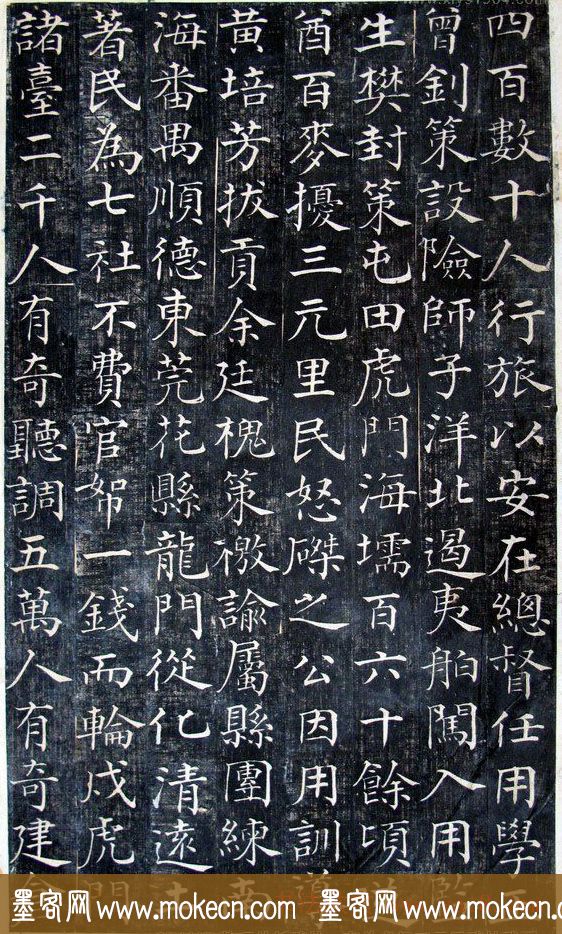 四百數十人行旅以安在總督任用學
曾釗策設險師子洋北遏夷舶闖入用
生樊封策屯田虎門海壖百六十餘頃
酋百麥擾三元里民怒磔之公因用訓導
黃培芳拔貢余廷槐策檄諭屬縣團練
海番禺順德東莞花縣龍門從化清遠
著民為七社不費官帑一錢而輪戍虎門
諸臺二千人有奇聽調五萬人有奇建
墨客网 www.mokecn.com 墨客网 www.mokecn.com 墨客网 www.mokecn.com